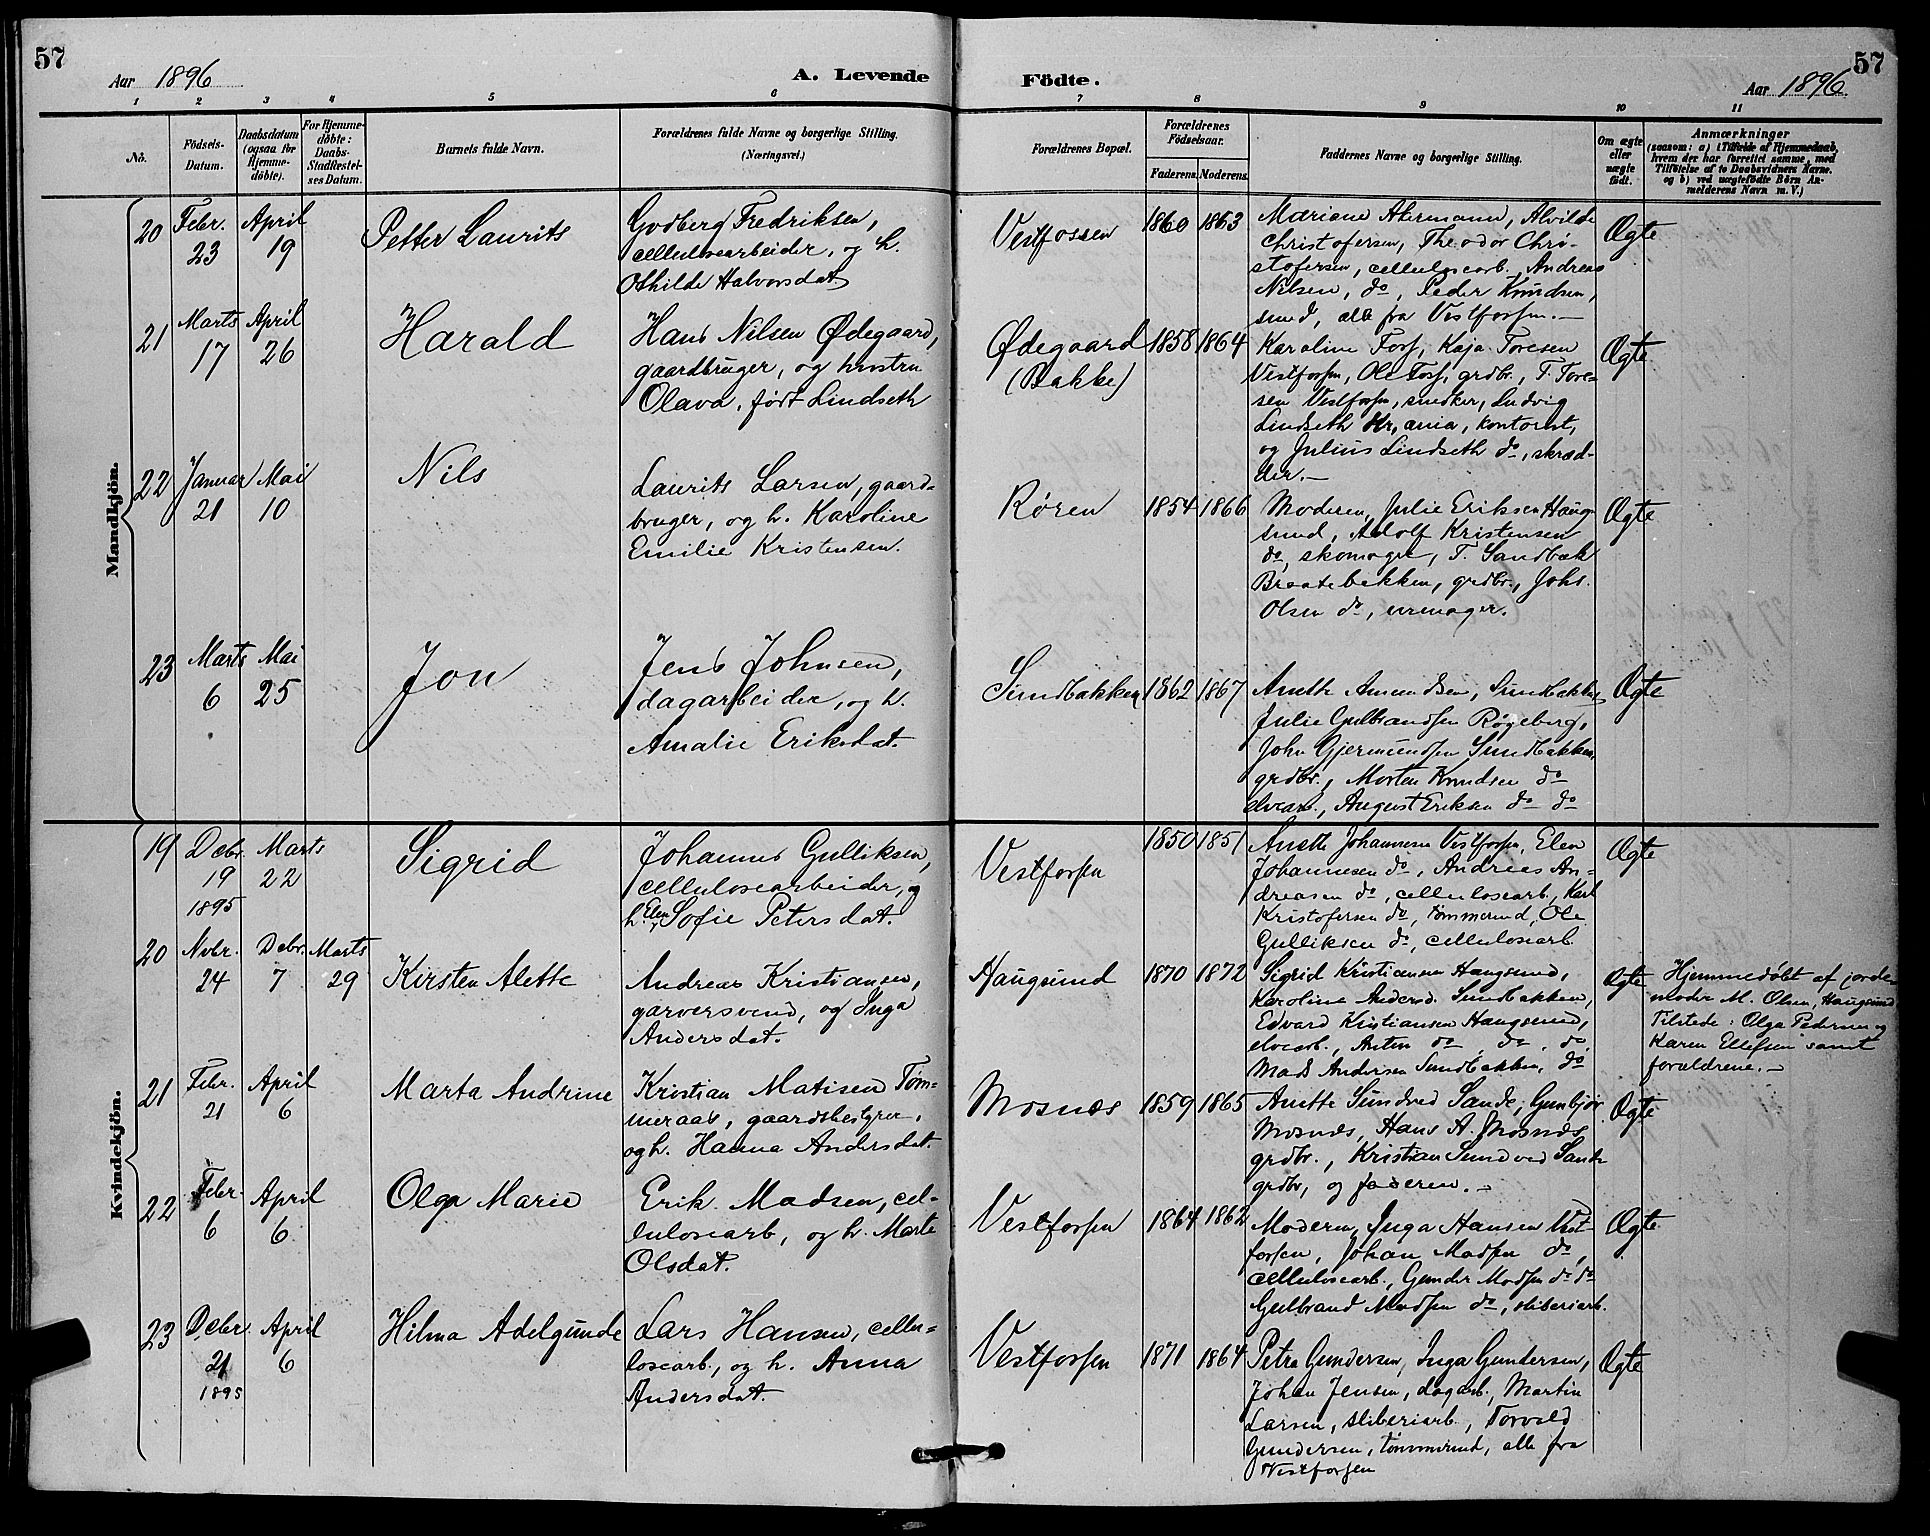 57
57
Aar 1896
A. Levende
Födte.
Aar 1896
1 2 3 4 5 6 7 8 9 10 11
No.
Födsels-
Datum.
Daabsdatum
(ogsaa for
Hjemme-
döbte).
For Hjemme-
döbte:
Daabs-
Stadfæstel-
ses Datum.
Barnets fulde Navn.
Forældrenes fulde Navne og borgerlige Stilling.
(Næringsvei.)
Forældrenes Bopæl.
Forældrenes
Födselsaar.
Faderens. Moderens.
Faddernes Navne og borgerlige Stilling.
Om ægte
eller
uægte
født.
Anmærkninger
(saasom: a) i Tilfælde af Hjemmedaab,
hvem der har forrettet samme, med
Tilföielse af to Daabsvidners Navne.
og b) ved uægtefödte Börn An-
melderens Navn m. V.)
Mandkjön.
20
Febr.
23
April
19
Petter Laurits
Godberg Fredriksen,
cellulosearbeider, og h.
Othilde Halvorsdat.
Vestfossen
1860
1863
Mariane Akermann, Alvilde
Christofersen, Theodor Chri-
stofersen, cellulosearb. Andreas
Nilsen, do, Peder Knudsen,
smed, alle fra Vestfossen.
Ægte
21
Marts
17
April
26
Harald
Hans Nilsen Ødegaard,
gaardbruger, og hustru
Olava, født Lindseth
Ødegaard
(Bakke)
1858
1864
Karoline Foss, Kaja Toresen
Vestfossen, Ole Foss, grdbr., T. Tore-
sen Vestfossen, snedker, Ludvig
Lindseth Kr,ania, kontorist,
og Julius Lindseth do, skræd-
der.
Ægte
22
Januar
21
Mai
10
Nils
Laurits Larsen, gaard-
bruger, og h. Karoline
Emilie Kristensen.
Røren
1854
1866
Moderen, Julie Eriksen Haug-
sund, Adolf Kristensen
do, skomager, T. Sandbæk
Braatebakken, grdbr., Johs.
Olsen do, urmager.
Ægte
23
Marts
6
Mai
25
Jon
Jens Johnsen,
dagarbeider, og h.
Amalie Eriksdat.
Sundbakken
1862
1867
Anette Amundsen, Sundbakken
Julie Gulbrandsen Røgeberg,
John Gjermundsen Sundbakken,
grdbr., Morten Knudsen do
elvearb., August Eriksen do do
Ægte
Kvindekjön.
19
Debr.
19
1895
Marts
22
Sigrid
Johannes Gulliksen,
cellulosearbeider, og
h. Elen Sofie Petersdat.
Vestfossen
1850
1851
Anette Johannesen Vestfossen, Elen
Johannesen do, Andreas An-
dreasen do, cellulosearb., Karl
Kristofersen do, tømmermd, Ole
Gulliksen do, cellulosearb.
Ægte
20
Novbr.
24
Debr.
7
Marts
29
Kirsten Alette
Andreas Kristiansen,
garversvend, og Inga
Andersdat.
Haugsund
1870
1872
Sigrid Kristiansen Haugsund,
Karoline Andersd. Sundbakken,
Edvard Kristiansen Haugsund,
elvearb., Anton do do, do,
Mads Andersen Sundbakken, do
Ægte
Hjemmedøbt af jorde-
moder M. Olsen, Haugsund
Tilstede: Olga Pedersen og
Karen Ellefsen samt
forældrene.
21
Febr.
21
April
6
Marta Andrine
Kristian Matisen Tøm-
meraas, gaardsbestyrer,
og h. Hanna Andersdat.
Mosnæs
1859
1865
Anette Sundved Sande, Gunbjør
Mosnæs, Hans A. Mosnæs
grdbr., Kristian Sundved Sande
grdbr, og faderen.
Ægte
22
Febr.
6
April
6
Olga Marie
Erik Madsen, cel-
lulosearb, og h. Marte
Olsdat.
Vestfossen
1864
1862
Moderen, Inga Hansen Vest-
fossen, Johan Madsen do,
cellulosearb., Gunder Madsen do do
Gulbrand Madsen do, sliberiarb.
Ægte
23
Debr.
21
1895
April
6
Hilma Adelgunde
Lars Hansen, cellu-
losearb., og h. Anna
Andersdat.
Vestfossen
1871
1864
Petra Gundersen, Inga Gundersen,
Johan Jensen, dagarb., Martin
Larsen, sliberiarb., Torvald
Gundersen, tømmermd, alle fra
Vestfossen
Ægte